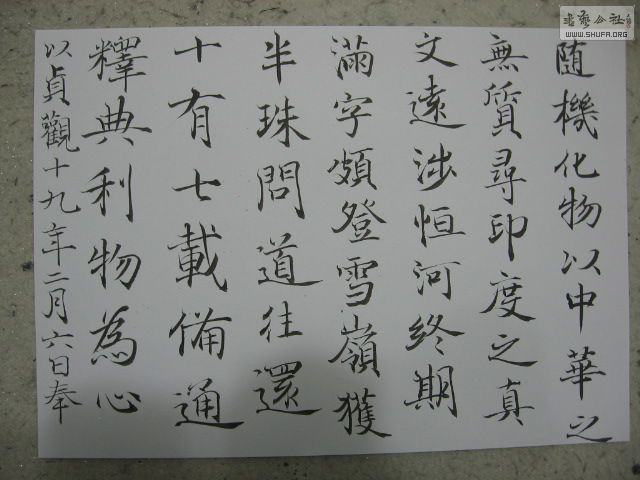 随機化物以中華之
無質尋印度之真
文遠涉恒河終期
滿字頻登雪嶺獲
半珠問道往還
十有七載備通
釋典利物為心
以貞觀十九年二月六日奉
書藝公社
WWW.SHUFA.ORG